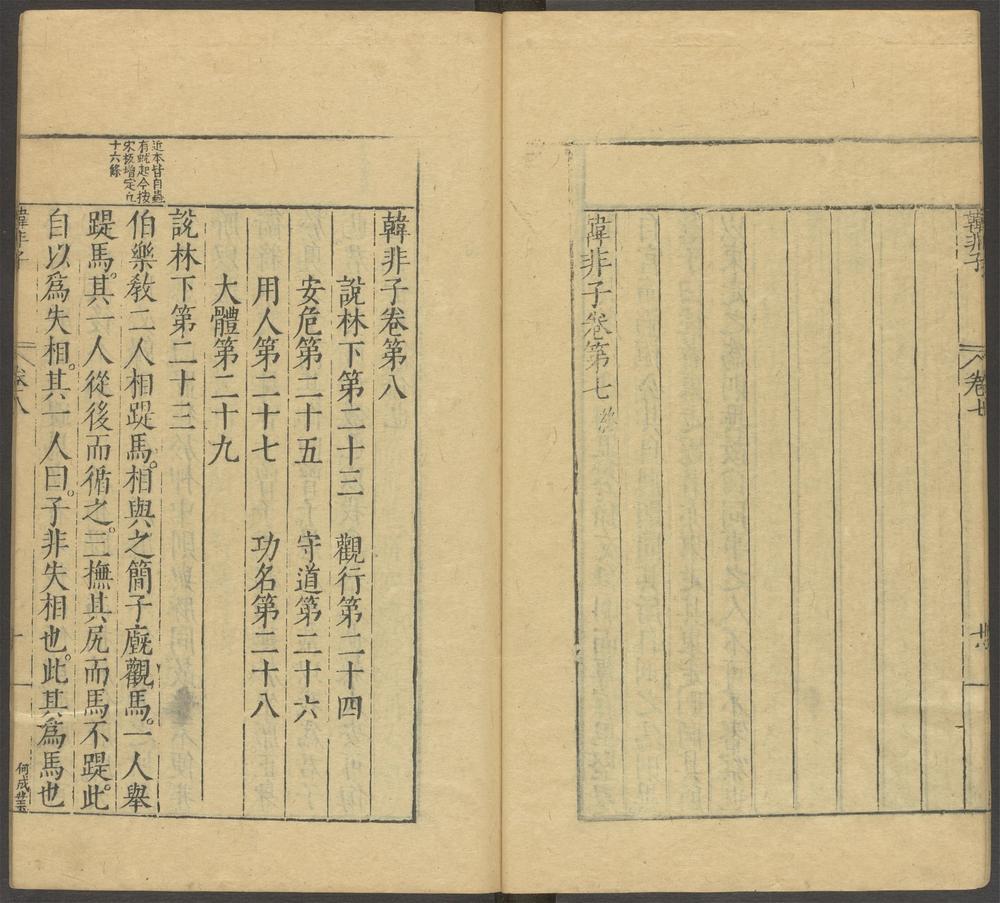 韓非子
卷七
韓非子卷第七 終
近本皆自蟲
有蚘起今按
宋板增定凡
十六條
韓非子卷第八
說林下第二十三 觀行第二十四
安危第二十五 守道第二十六
用人第二十七 功名第二十八
大體第二十九
說林下第二十三
伯樂敎二人相踶馬。相與之簡子廐觀馬。一人舉
踶馬。其一人從後而循之。三撫其尻而馬不踶。此
自以爲失相。其一人曰。子非失相也。此其爲馬也
韓非子
卷八
一